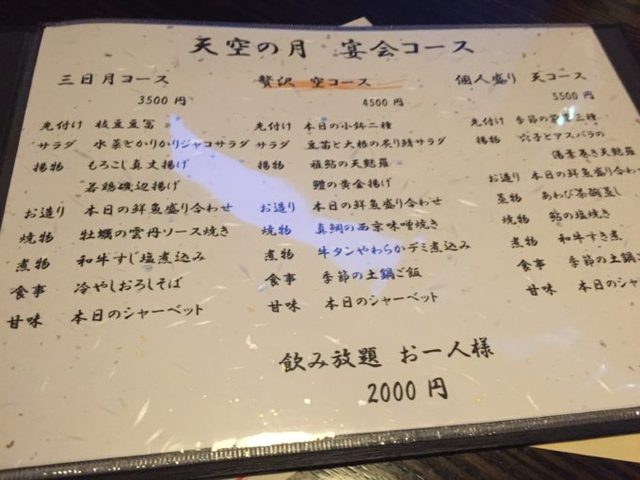 天空の月 宴会コース
三日月コース
3500円
先付け 枝豆豆冨
サラダ 水菜とかりかりジャコサラダ
揚物 もろこし真丈揚げ
若鶏磯辺揚げ
お造り 本日の鮮魚盛り合わせ
焼物 牡蠣の雲丹ソース焼き
煮物 和牛すじ塩煮込み
食事 冷やしおろしそば
甘味 本日のシャーベット
贅沢 空コース
4500円
先付け 本日の小鉢二種
サラダ 豆苗と大根の炙り鯖サラダ
揚物 稚鮎の天麩羅
鱧の黄金揚げ
お造り 本日の鮮魚盛り合わせ
焼物 真鯛の西京味噌焼き
煮物 牛タンやわらかデミ煮込み
食事 季節の土鍋ご飯
甘味 本日のシャーベット
個人盛り 天コース
5500円
先付け 季節の 三種
揚物 穴子とアスパラの
湯葉巻き天麩羅
お造り 本日の鮮魚盛り合わ
蒸物 あわび茶碗蒸し
焼物 鮎の塩焼き
煮物 和牛すき煮
食事 季節の土鍋ご
甘味 本日のシャー
飲み放題 お一人様
2000円